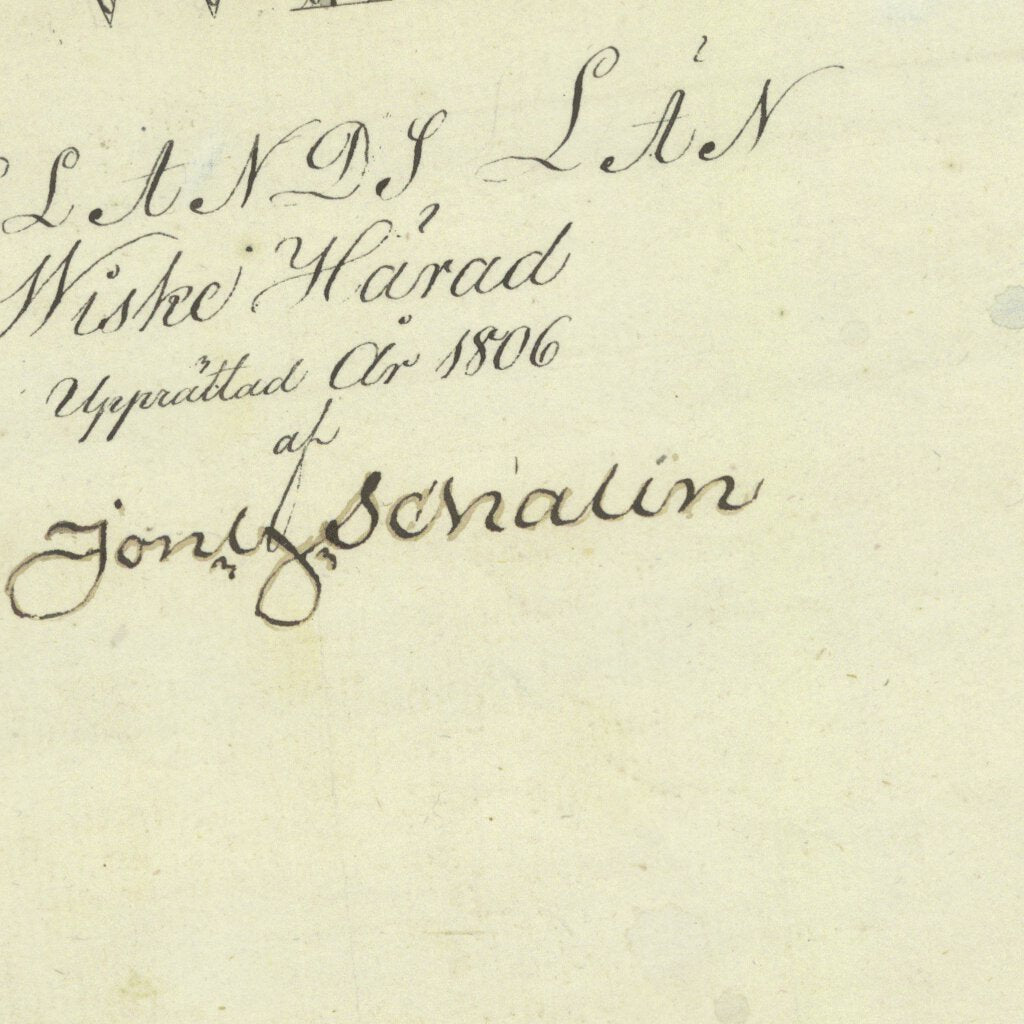 LANDS LÄN
Wiske Härad
Upprättad År 1806
af
Schalin